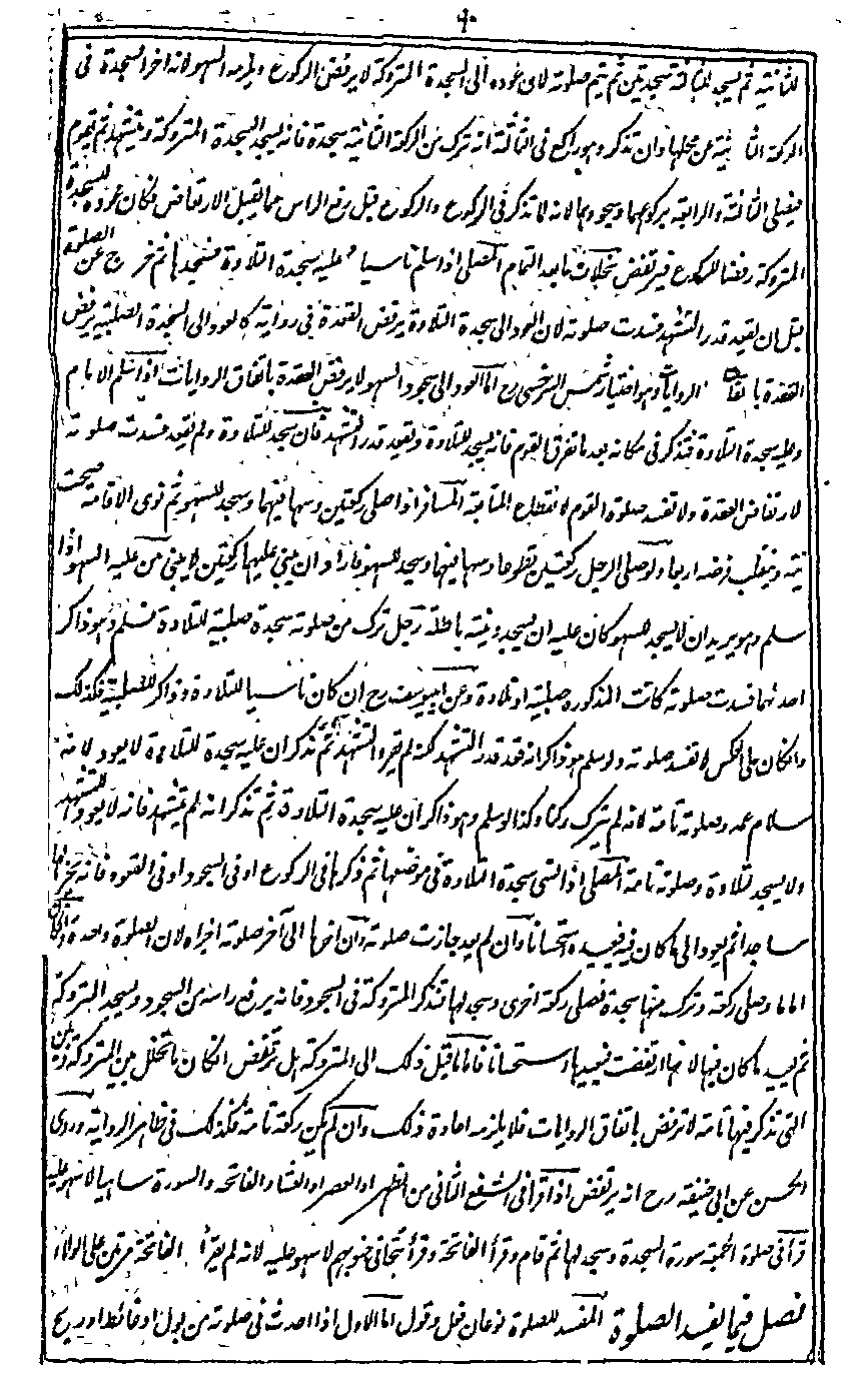 للثانية ثم يسجد للثالثة سجدتين ثم يتم صلوته لان عوده الى السجدة المتروكة لا يرفض الركوع ويلزمه السهو لانه اخر السجدة فى
الركعة الثانية عن محلها وان تذكر وهو راكع فى الثالثة انه ترك من الركعة الثانية سجدة فانه يسجد السجدة المتروكة ويتشهد ثم يقوم
فيصلى الثالثة والرابعة بركوعهما وسجودهما لانه لما تذكر فى الركوع والركوع قبل رفع الراس مما يقبل الارتفاض فكان عوده للسجدة
المتروكة رفضا للركوع فيرتفض بخلاف ما بعد التمام المصلى اذا سلم ناسيا وعليه سجدة التلاوة فسجدها ثم خرج عن الصلوة
قبل ان يقعد قدر التشهد فسدت صلوته لان العود الى سجدة التلاوة يرفض القعدة فى رواية كالعود الى السجدة الصلبية يرفض
القعدة باتفاق الروايات وهو اختيار شمس السرخسى رح اما العود الى سجود السهو لا يرفض القعدة باتفاق الروايات اذا سلم الامام
وعليه سجدة التلاوة فتذكر فى مكانه بعد ما تفرق القوم فانه يسجد للتلاوة ويقعد قدر التشهد فان سجد للتلاوة ولم يقعد فسدت صلوته
لارتفاض القعدة ولا تفسد صلوة القوم لانقطاع المتابعة المسافر اذا صلى ركعتين وسها فيهما وسجد للسهو ثم نوى الاقامة صحت
نيته وينقلب فرضه اربعا ولو صلى الرجل ركعتين تطوعا وسها فيهما وسجد للسهو فاراد ان يبنى عليها ركعتين لا يبنى من عليه السهو اذا
سلم وهو يريد ان لا يسجد للسهو كان عليه ان يسجد ونيته باطلة رجل ترك من صلوته سجدة صلبية للتلاوة فسلم وهو ذاكر
احدهما فسدت صلوته كانت المذكورة صلبية او تلاوة وعن ابيوسف رح ان كان ناسيا للتلاوة وذاكر للصلبية فكذلك
وان كان على العكس لا تفسد صلوته ولو سلم وهو ذاكر انه قعد قدر التشهد لكنه لم يقرء التشهد ثم تذكر ان عليه سجدة للتلاوة لا يعود لانه
سلام عمد وصلوته تامة لانه لم يترك ركنا وكذا لو سلم وهو ذاكر ان عليه سجدة التلاوة ثم تذكر انه لم يتشهد فانه لا يعود للتشهد
ولا يسجد لتلاوة وصلوته تامة المصلى اذا نسى سجدة التلاوة فى موضعها ثم ذكرها فى الركوع او فى السجود او فى القعود فانه يخر لها
ساجدا ثم يعود الى ما كان فيه فيعيده استحسانا وان لم يعد جازت صلوته وان اخرها الى آخر صلوته اجزاه لان الصلوة واحدة
اماما وصلى ركعة وترك منها سجدة فصلى ركعة اخرى وسجد لها فتذكر المتروكة فى السجود فانه يرفع راسه من السجود ويسجد المتروكة
ثم يعيد ما كان فيها لانها ارتفضت فيعيدها استحسانا فاما ما قبل ذلك الى المتروكة هل ترتفض ان كان ما تخلل بين المتروكة وبين
التى تذكر فيها تامة لا ترتفض باتفاق الروايات فلا يلزمه اعادة ذلك وان لم يكن ركعة تامة فكذلك فى ظاهر الرواية وروى
الحسن عن ابى حنيفة رح انه يرتفض اذا قرا فى الشفع الثانى من الظهر او العصر او العشاء الفاتحة والسورة ساهيا لا سهو عليه
قرأ فى صلوة الجمعة سورة السجدة وسجد لها ثم قام وقرأ الفاتحة وقرأ تتجافى جنوبهم لا سهو عليه لانه لم يقرأ الفاتحة مرتين على الولاء
فصل فيما يفسد الصلوة المفسد للصلوة نوعان فعل وقول اما الاول اذا احدث فى صلوته من بول او غائط او ريح